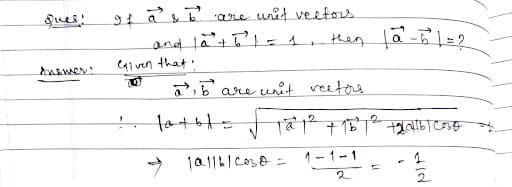 Ques: If a⃗ & b⃗ are unit vectors
and |a⃗ + b⃗| = 1, then |a⃗ - b⃗| = ?
Answer: Given that:
a⃗, b⃗ are unit vectors
∴ |a+b| = √|a⃗|² + |b⃗|² + 2|a||b| Cosθ
→ |a||b| Cosθ = 1-1-1/2 = - 1/2